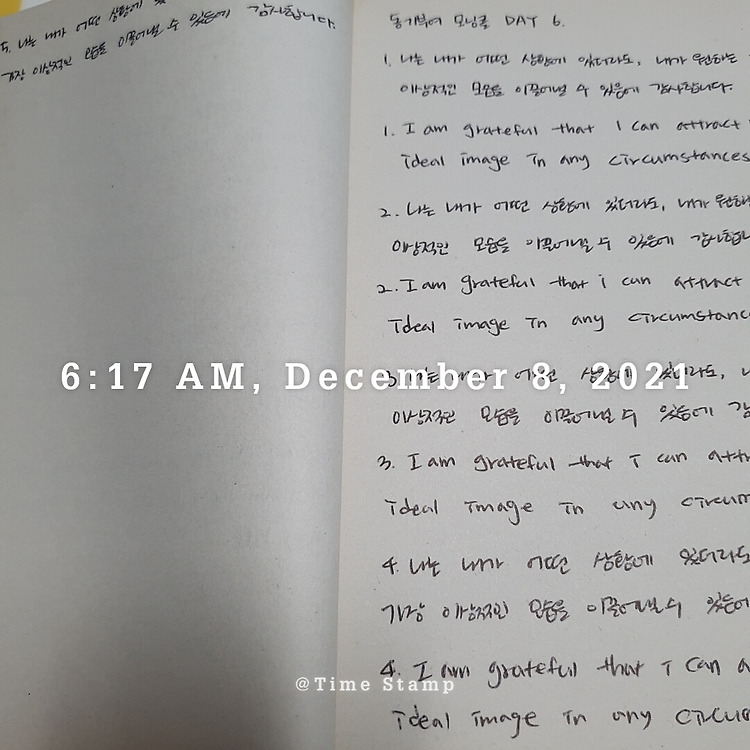 5. 나는 내가 어떤 상황에 있
가장 이상적인 모습을 이끌어낼 수 있음에 감사합니다.
동기부여 모닝콜 DAY 6.
1. 나는 내가 어떤 상황에 있더라도, 내가 원하는
이상적인 모습을 이끌어낼 수 있음에 감사합니다.
1. I am grateful that I can attract
ideal image in any circumstances
2. 나는 내가 어떤 상황에 있더라도, 내가 원하는
이상적인 모습을 이끌어낼 수 있음에 감사합니
2. I am grateful that i can attract
ideal image in any circumstanc
6:17 AM, December 8, 2021
3. 나는 내가 어떤 상황에 있더라도,
이상적인 모습을 이끌어낼 수 있음에 감
3. I am grateful that i can attr
ideal image in any circum
4. 나는 내가 어떤 상황에 있더라도
가장 이상적인 모습을 이끌어낼 수 있음에
4. I am grateful that i can a
@Time Stamp
ideal image in any circum